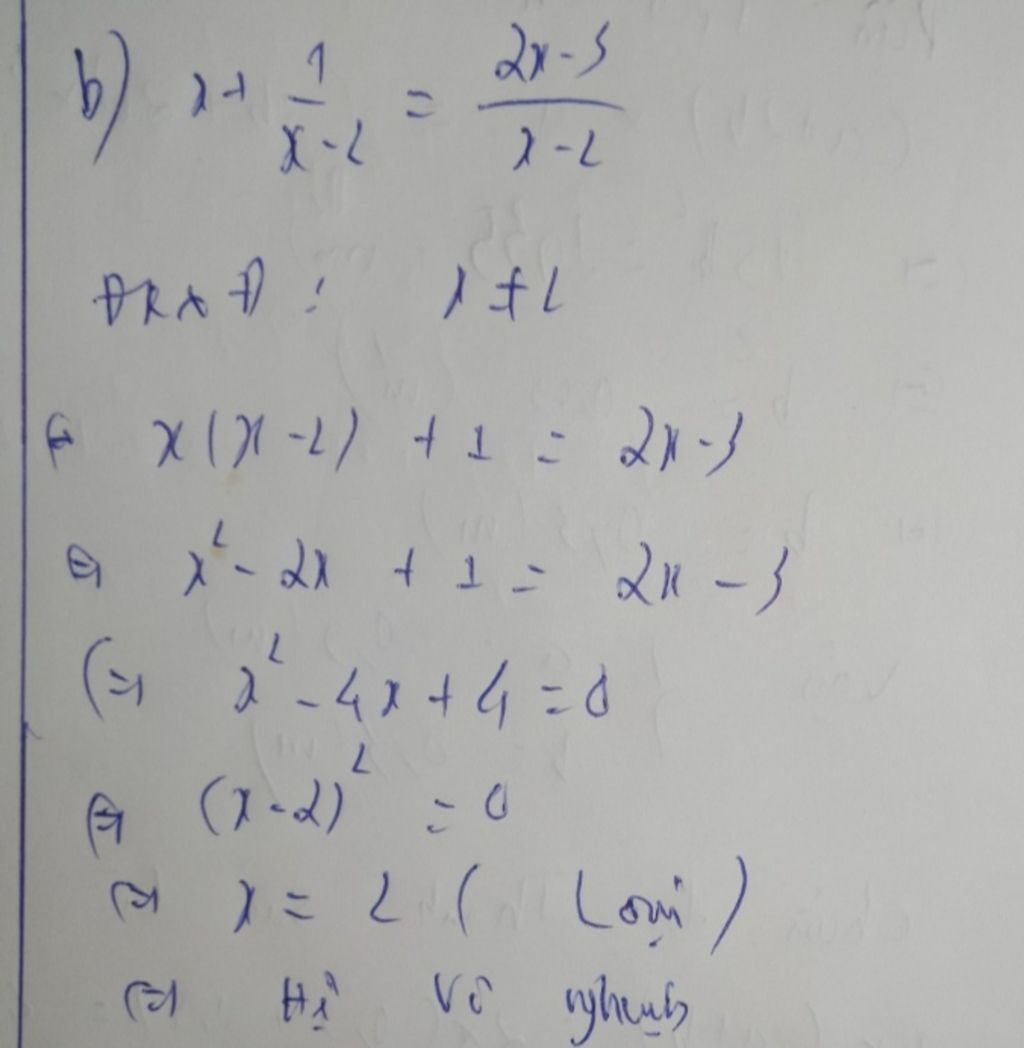 b) x + 1/(x-2) = (2x-3)/(x-2)
ĐKXĐ : x ≠ 2
⇔ x(x-2) + 1 = 2x-3
⇔ x² - 2x + 1 = 2x - 3
⇔ x² - 4x + 4 = 0
⇔ (x-2)² = 0
⇔ x = 2 ( Loại )
⇔ Hệ Vô nghiệm